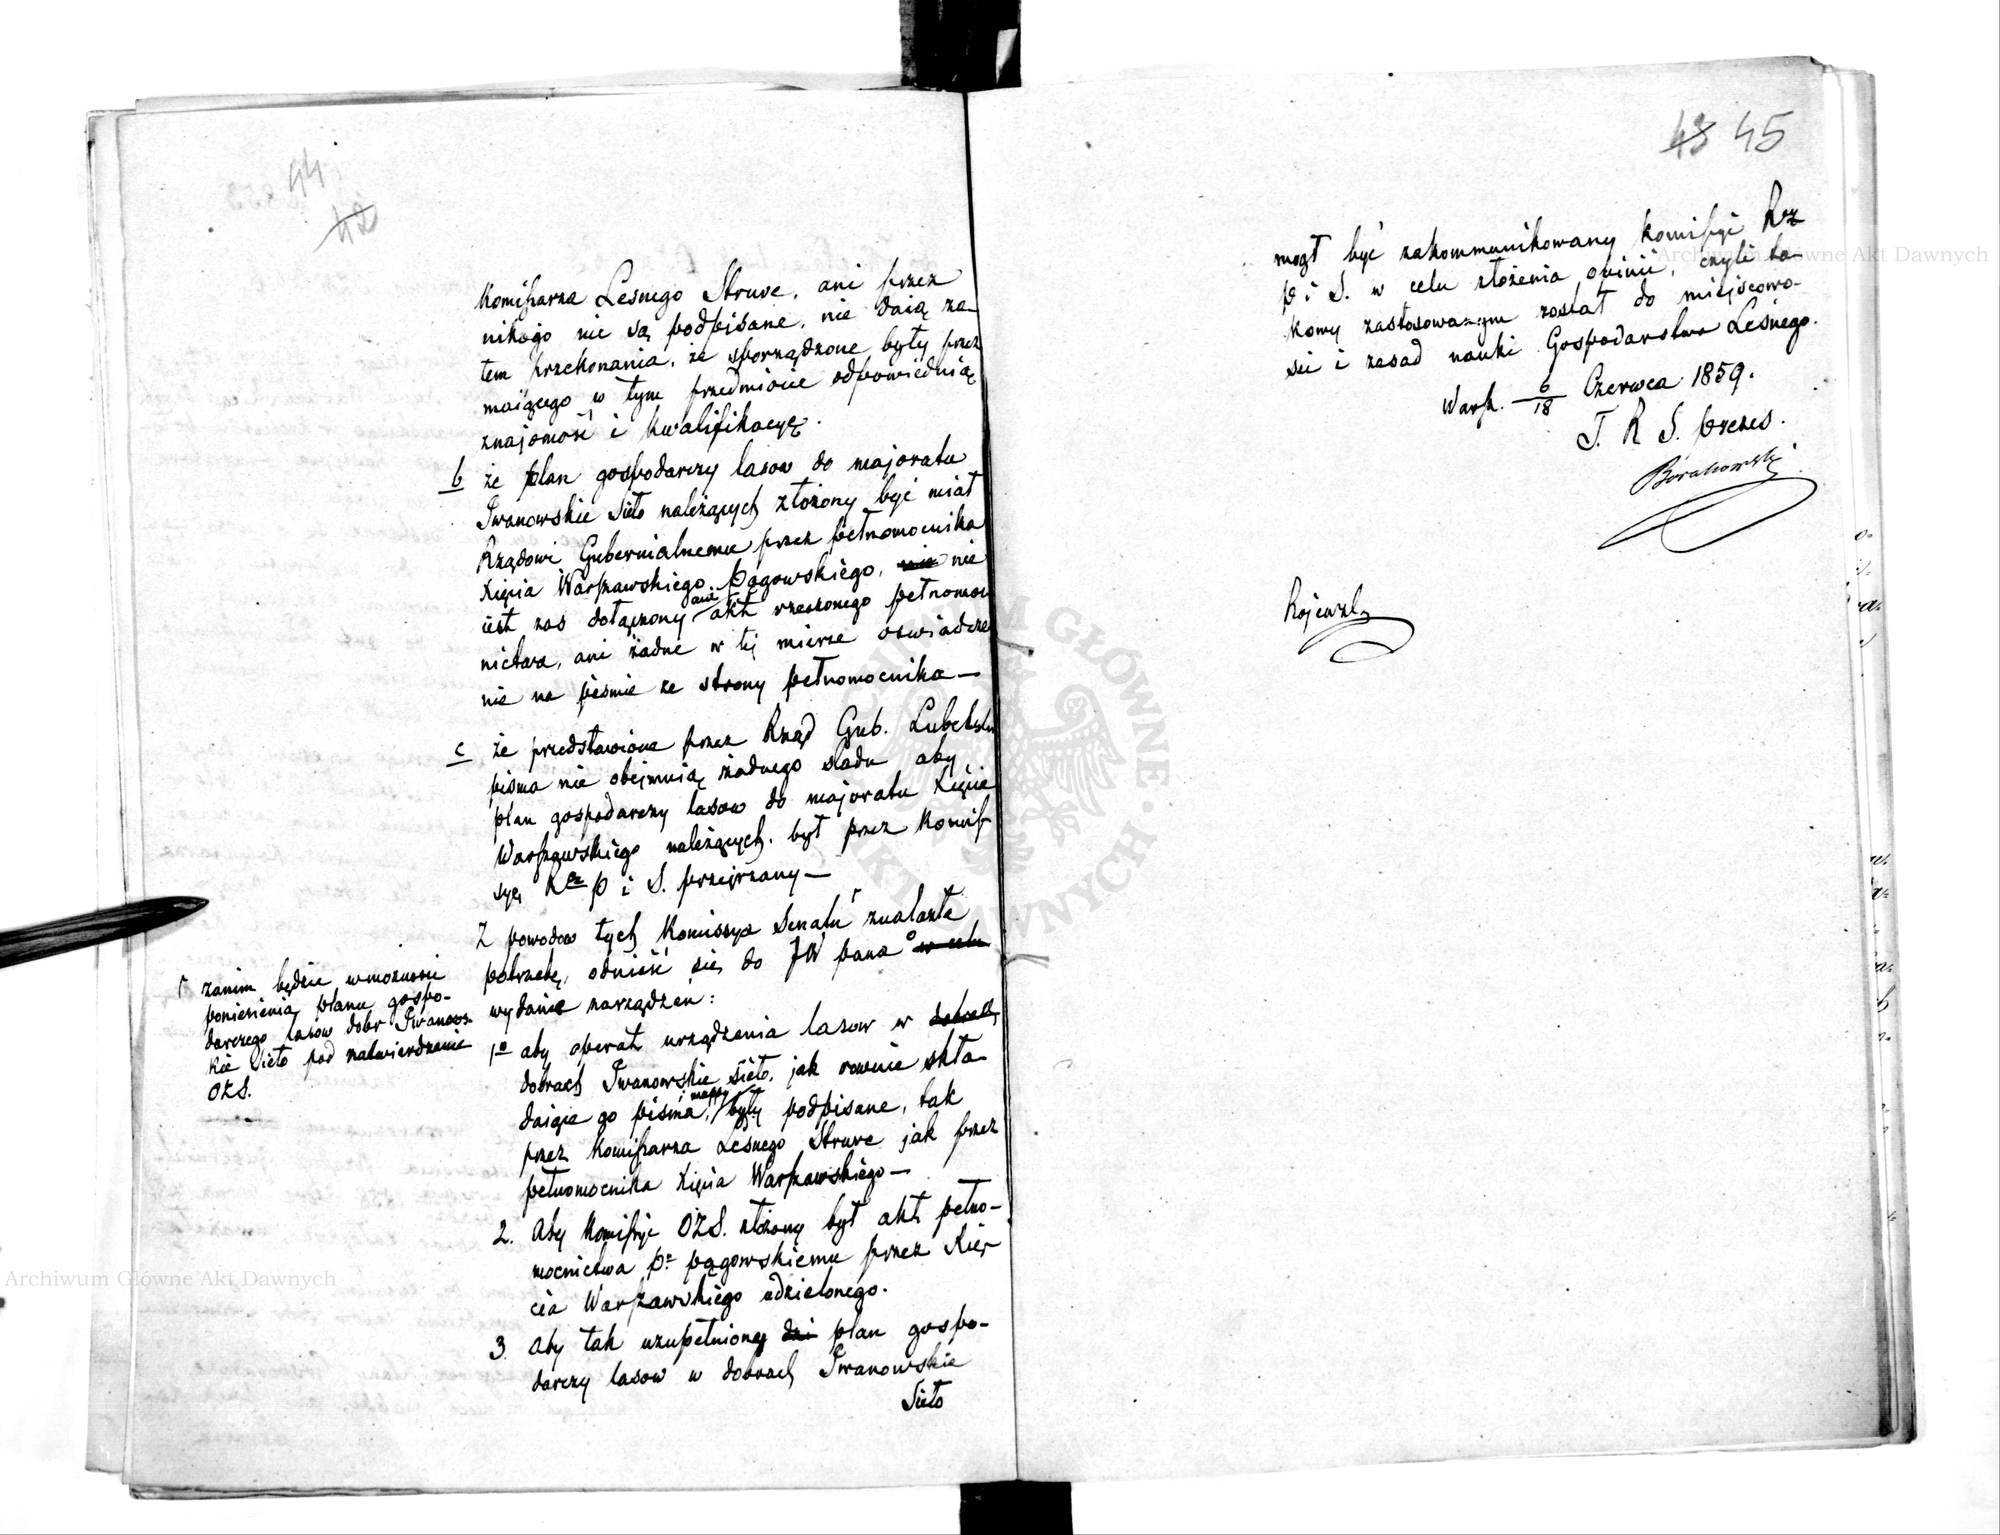 44
42
Komissarza Lesnego Struve, ani przez
nikogo nie są podpisane, nie daią za-
tem przekonania, że sporządzone były przez
maiącego w tym przedmiocie odpowiednią
znajomość i kwalifikacyę.
b że plan gospodarczy lasow do majoratu
Iwanowskie Sieło należących złożony być miał
Rządowi Gubernialnemu przez pełnomocnika
Xięcia Warszawskiego Pągowskiego, nie nie
iest zas dołączony ani akt rzeczonego pełnomoc
nictwa, ani żadne w tej mierze oswiadcze
nie na piśmie ze strony pełnomocnika —
c że przedstawione przez Rząd Gub. Lubelski
pisma nie obejmuią żadnego sladu aby
plan gospodarczy lasow do majoratu Xięcia
Warszawskiego należących, był przez Komis-
syę Rz P i S. przejrzany —
Z powodow tych Komissya Senatu znalazła
potrzebę, odnieść się do JW pana o w celu
wydanie narządzeń:
Γ zanim będzie w możności
poniesienia planu gospo-
darczego lasów dobr Iwanows-
kie Sieło pod zatwierdzenie
OZS.
1o aby operat urządzenia lasow w dobrach
dobrach Iwanowskie Sieło, jak rownie skła-
daiące go pisma, i mappy były podpisane, tak
przez Komissarza Leśnego Struve jak przez
pełnomocnika Xięcia Warszawskiego —
2. Aby Komissyi OZS. złożony był akt pełno-
mocnictwa Pu Pągowskiemu przez Xię-
cia Warszawskiego udzielonego.
3. Aby tak uzupełniony plan gospo-
darczy lasow w dobrach Iwanowskie
Sieło
43 45
mógł być zakommunikowany Komissyi Rz
P i S. w celu złożenia opinii, czyli ta-
kowy zastosowanym został do miejscowo-
sci i zasad nauki Gospodarstwa Leśnego.
Warsz. 6/18 Czerwca 1859.
T. R. S. Prezes.
Borakowski
Archiwum Główne Akt Dawnych
Archiwum Główne Akt Dawnych